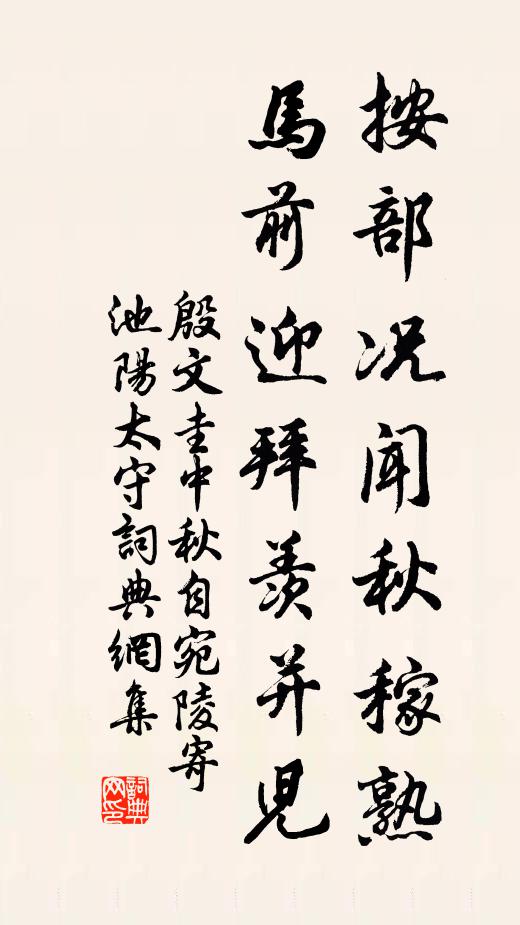 按部况闻秋稼熟
馬前迎拜羨并児
殷文圭中秋自宛陵寄
池陽太守詞典網集
詞典
网印